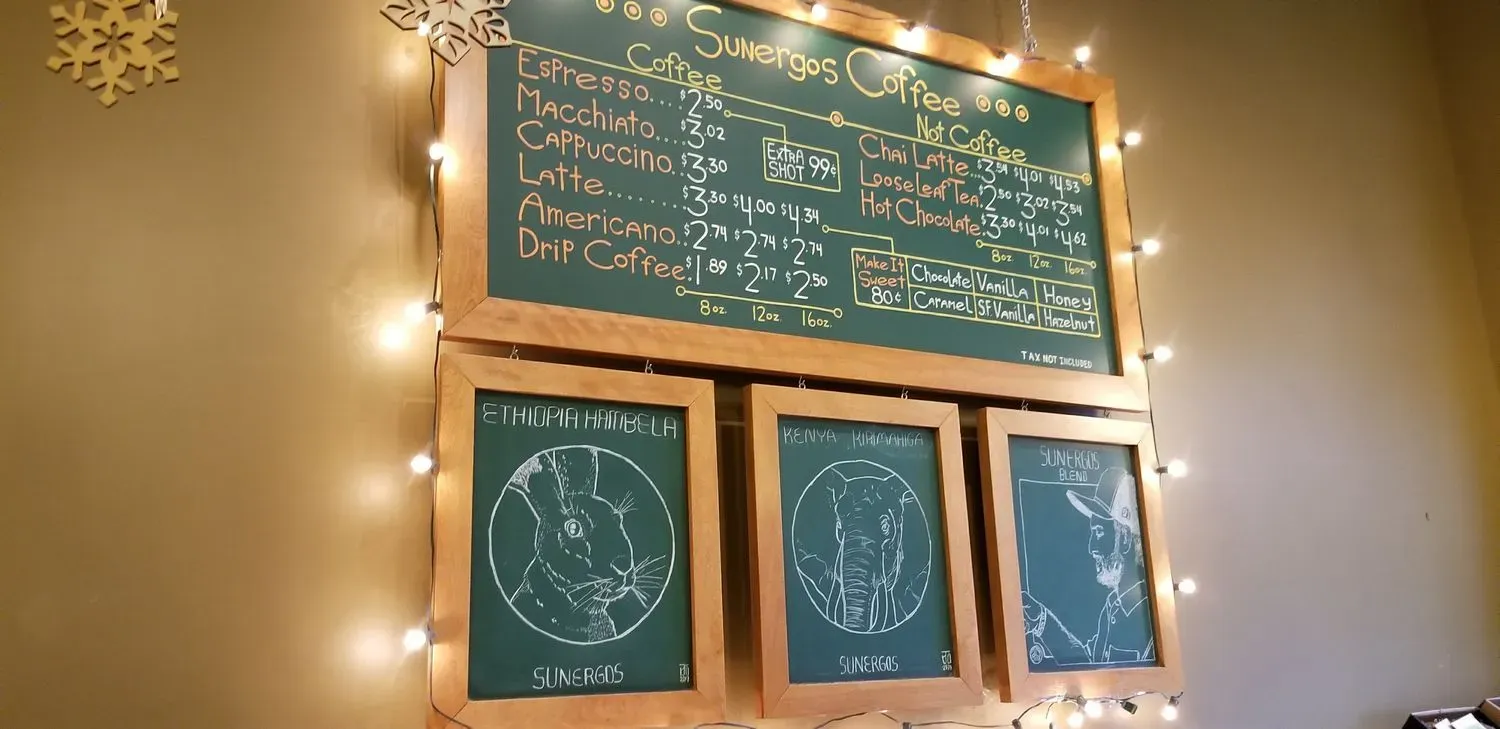 Sunergos Coffee
Coffee
Espresso.... $2.50
Macchiato.... $3.02
Cappuccino.. $3.30
Latte........ $3.30 $4.00 $4.34
Americano.. $2.74 $2.74 $2.74
Drip Coffee. $1.89 $2.17 $2.50
8oz. 12oz. 16oz.
Extra
Shot 99¢
Not Coffee
Chai Latte... $3.54 $4.01 $4.53
Loose Leaf Tea. $2.50 $3.02 $3.54
Hot Chocolate.. $3.30 $4.01 $4.62
8oz. 12oz. 16oz.
Make It
Sweet
80¢
Chocolate Vanilla Honey
Caramel S.F. Vanilla Hazelnut
TAX NOT INCLUDED
ETHIOPIA HAMBELA
SUNERGOS
KENYA KIRIMAHIGA
SUNERGOS
SUNERGOS
BLEND